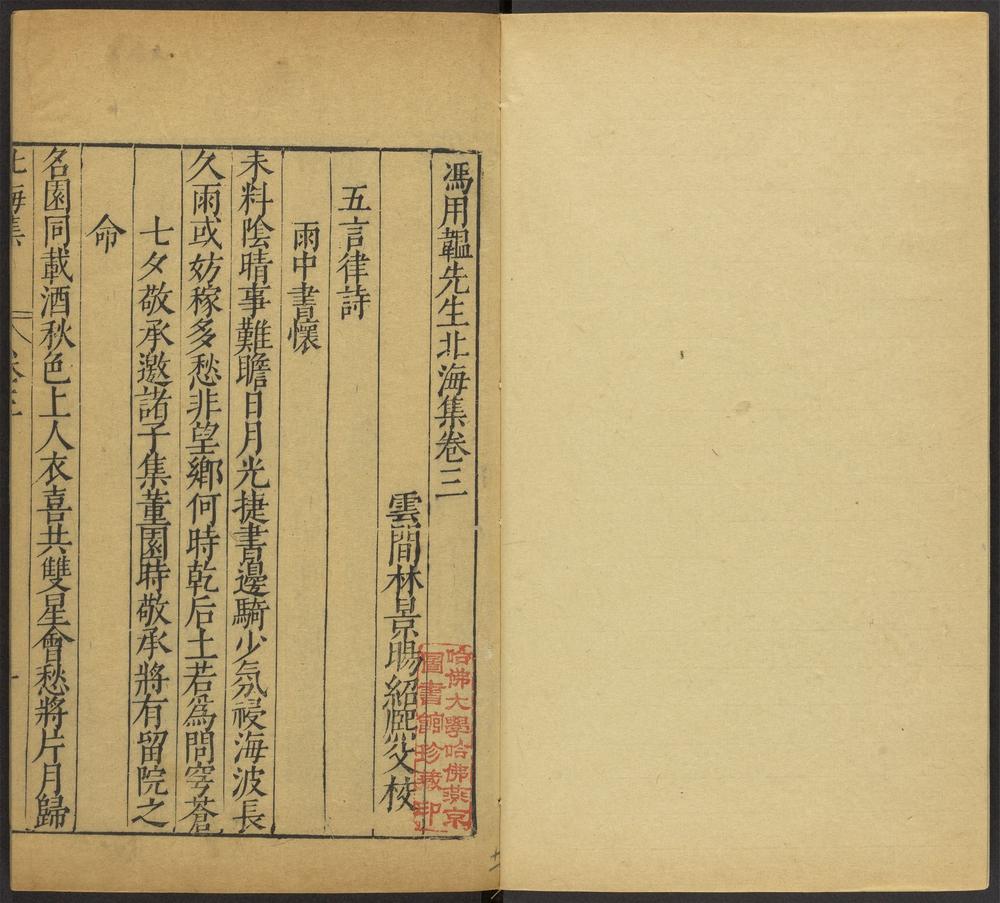 馮用韞先生北海集卷三
雲間林景暘紹熙父校
五言律詩
雨中書懷
未料陰晴事難瞻日月光捷書邊騎少氛祲海波長
久雨或妨稼多愁非望鄉何時乾后土若爲問穹蒼
七夕敬承邀諸子集董園時敬承將有留院之
命
名園同載酒秋色上人衣喜共雙星會愁將片月歸
北海集
卷三
一
哈佛大學哈佛燕京
圖書館珍藏印